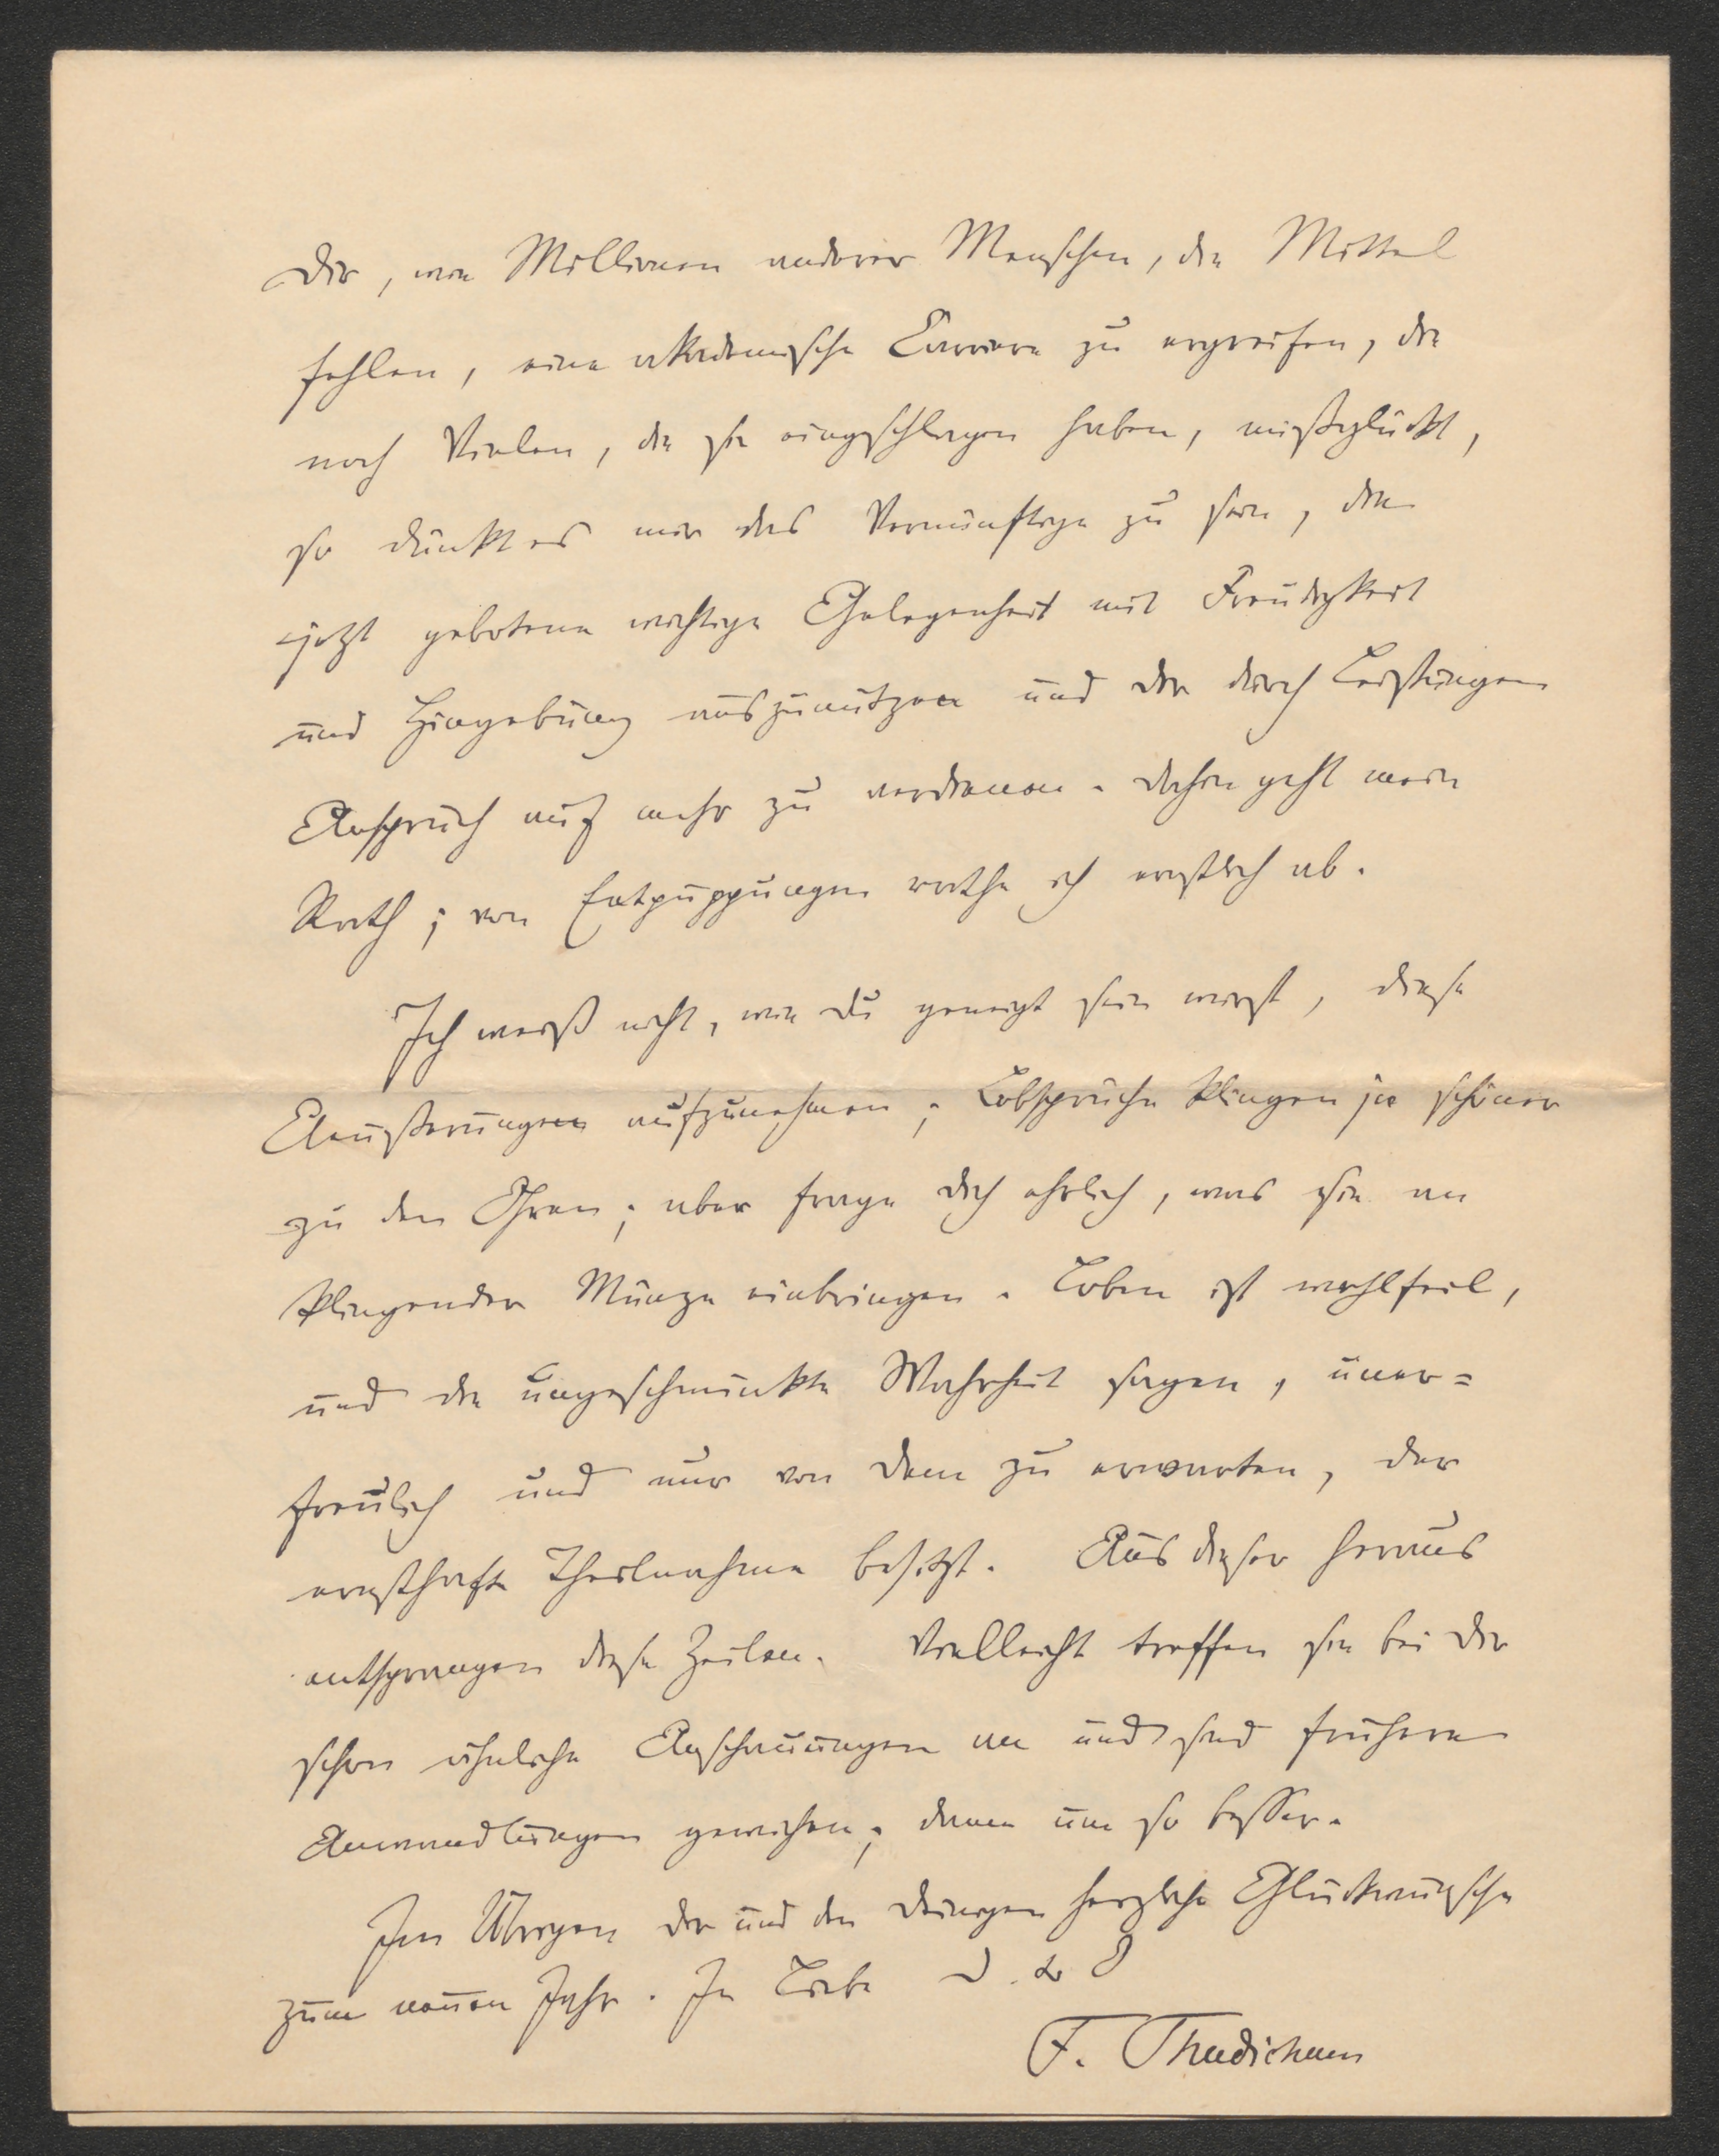 Dir, wie Millionen anderer Menschen, die Mittel
fehlen, eine akademische Carriere zu ergreifen, die
noch Vielen, die sie eingeschlagen haben, mißglückt,
so dünkt es mir das Vernünftige zu sein, die
jetzt gebotene wichtige Gelegenheit mit Freudigkeit
und Hingebung auszunützen und Dir durch Leistungen
Anspruch auf mehr zu verdienen. Dahin geht mein
Rath; von Entpuppungen rathe ich ernstlich ab.
Ich weiß nicht, wie Du geneigt sein wirst, diese
Aeußerungen aufzunehmen; Lobsprüche klingen ja schöner
zu den Ohren; aber frage Dich ehrlich, was sie an
klingender Münze einbringen. Loben ist wohlfeil,
und die ungeschminkte Wahrheit sagen, uner-
freulich und nur von dem zu erwarten, der
ernsthafte Theilnahme besitzt. Aus dieser heraus
entsprangen diese Zeilen. Vielleicht treffen sie bei Dir
schon ähnliche Anschauungen an und sind frühere
Anwandlungen gewichen; dann um so besser.
Im Übrigen Dir und den Deinigen herzliche Glückwünsche
zum neuen Jahr. In Liebe D.
F. Thudichum